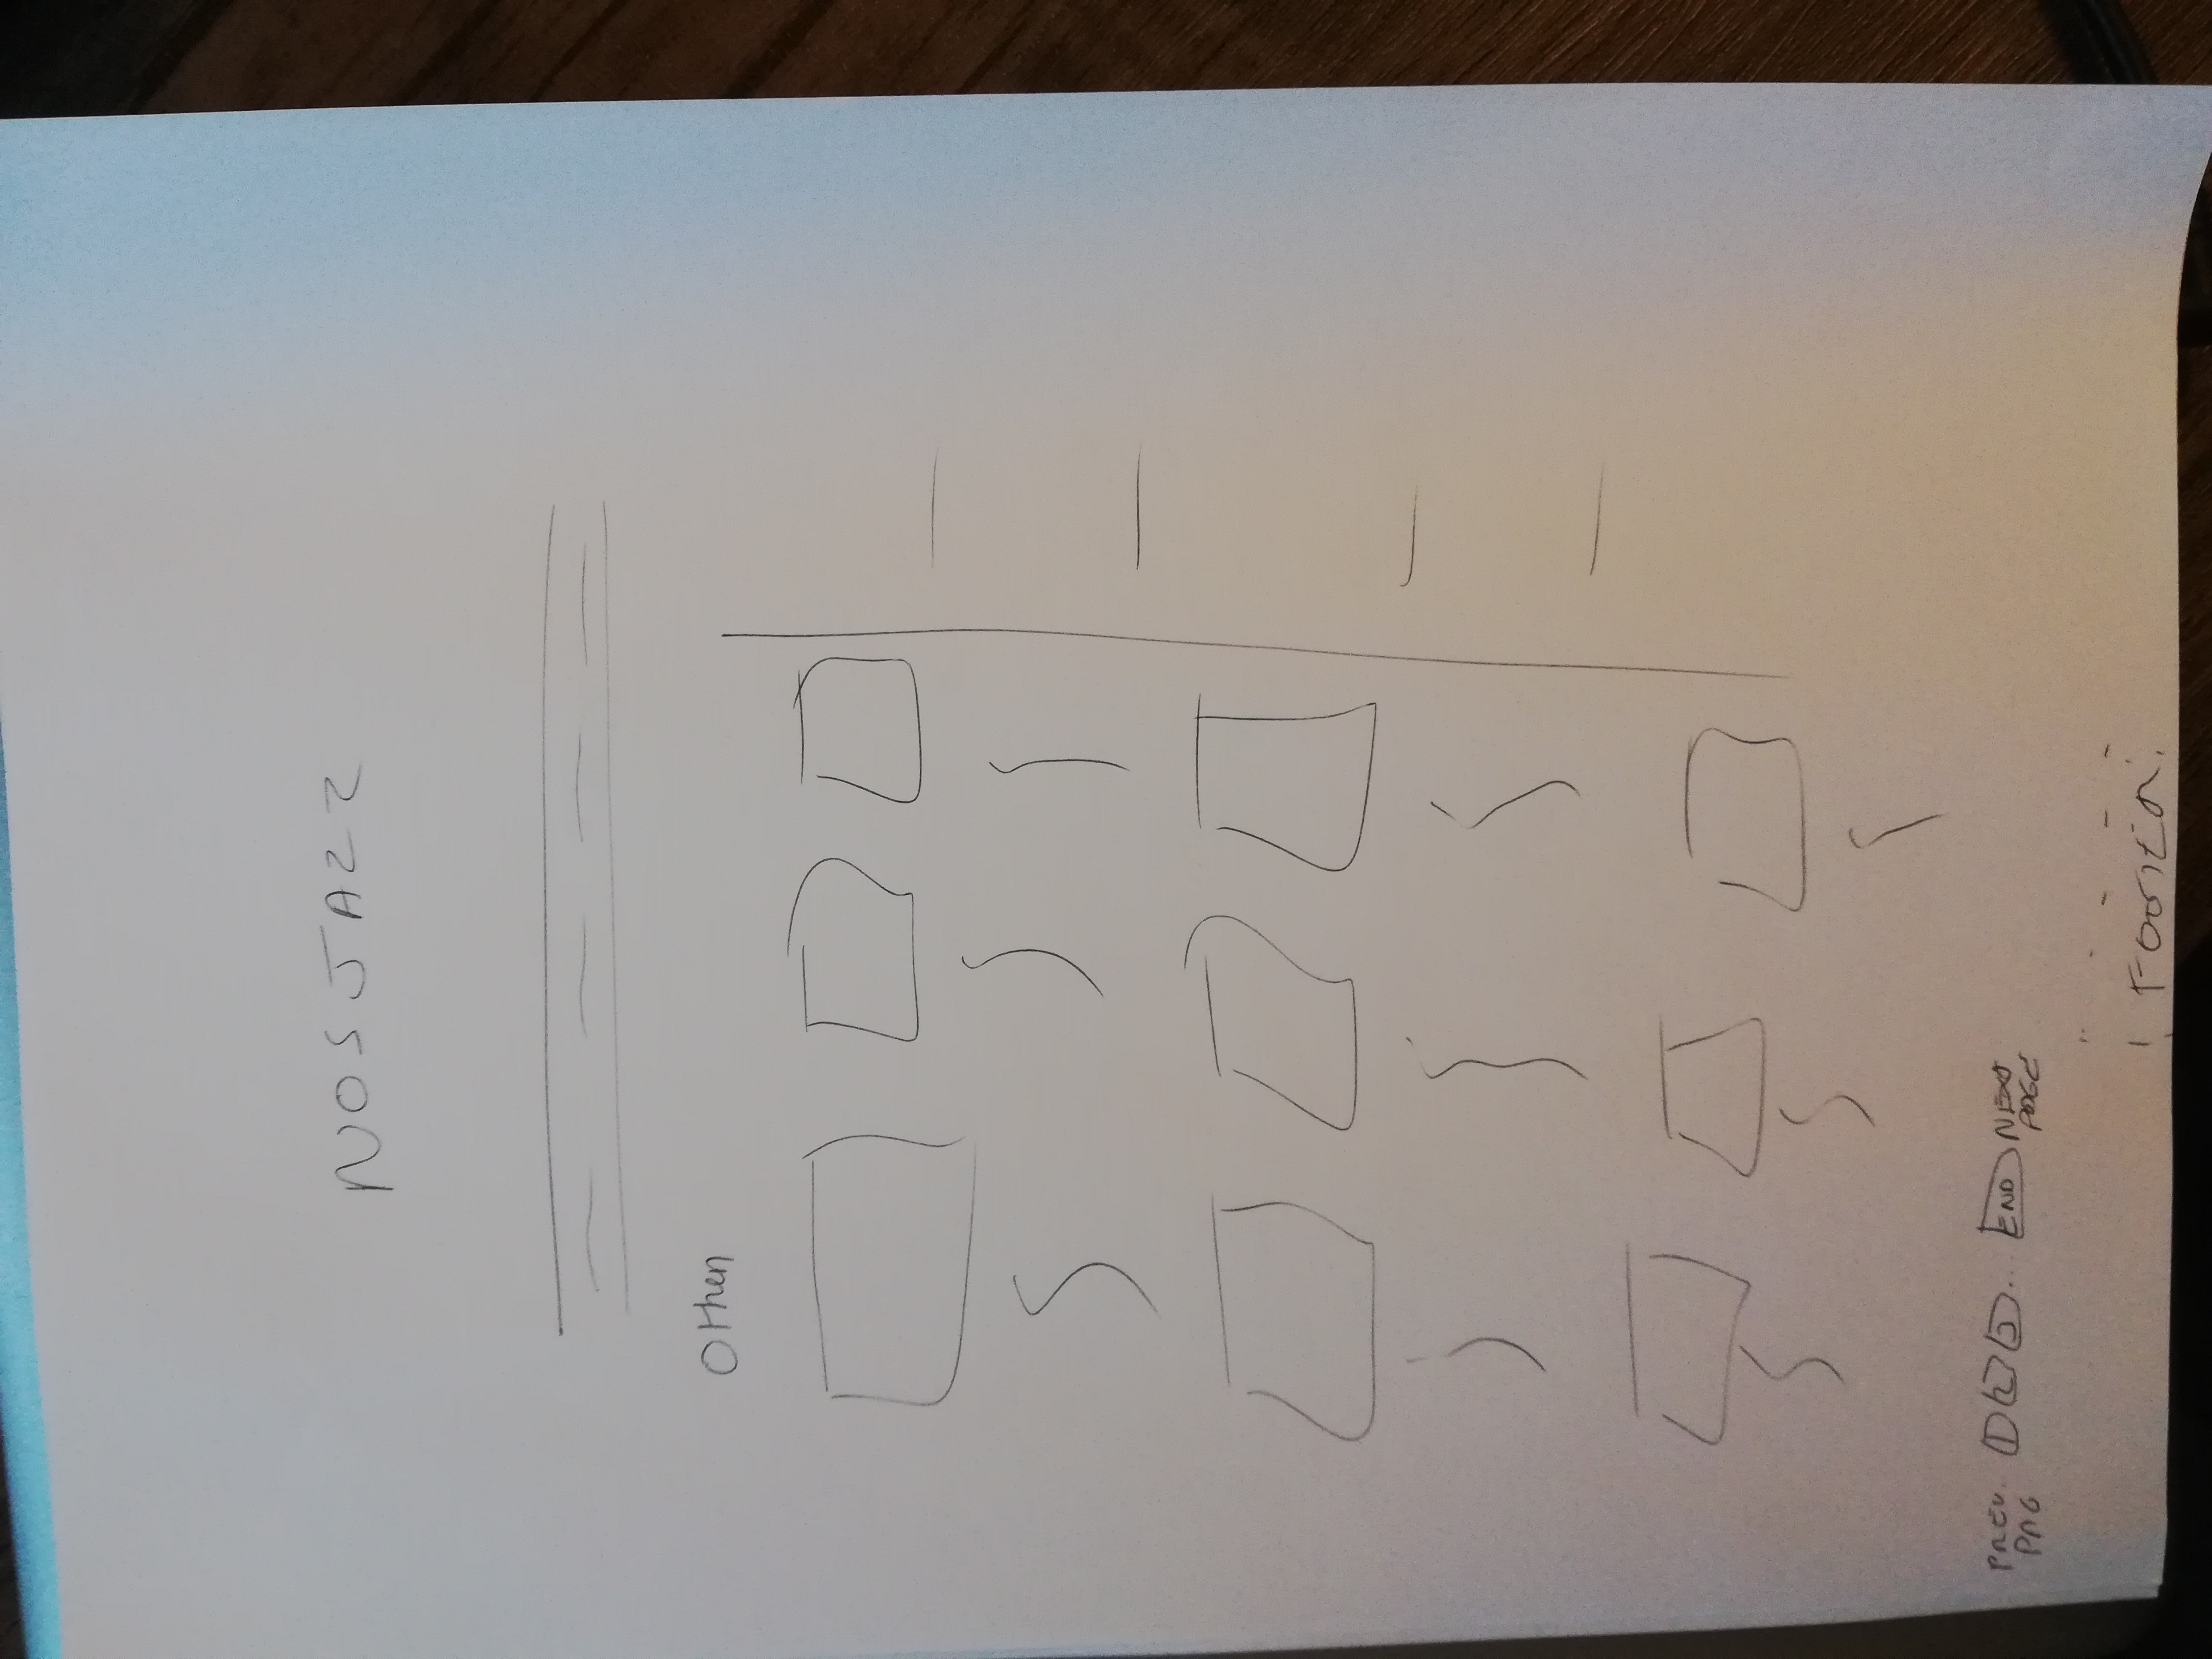 NOS JAZZ
Other
PREV. 1 2 3 ... END NEXT
PAG PAGE
FOOTER.